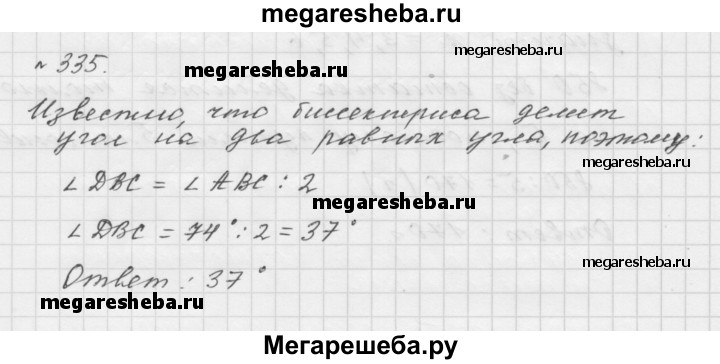 megaresheba.ru
№ 335.
megaresheba.ru
Известно, что биссектриса делит
угол на два равных угла, поэтому:
megaresheba.ru
∠ DBC = ∠ ABC : 2
megaresheba.ru
∠ DBC = 74° : 2 = 37°
megaresheba.ru
Ответ : 37°
megaresheba.ru
Мегарешеба.ру